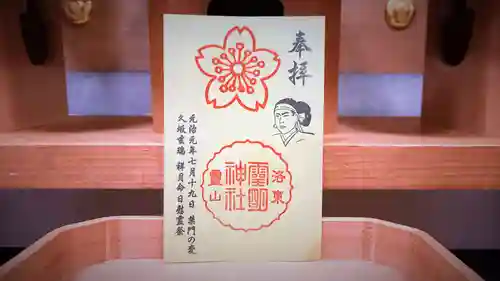 奉拝
洛東
靈明
神社
靈山
元治元年七月十九日 禁門の変
久坂玄瑞 祥月命日慰霊祭